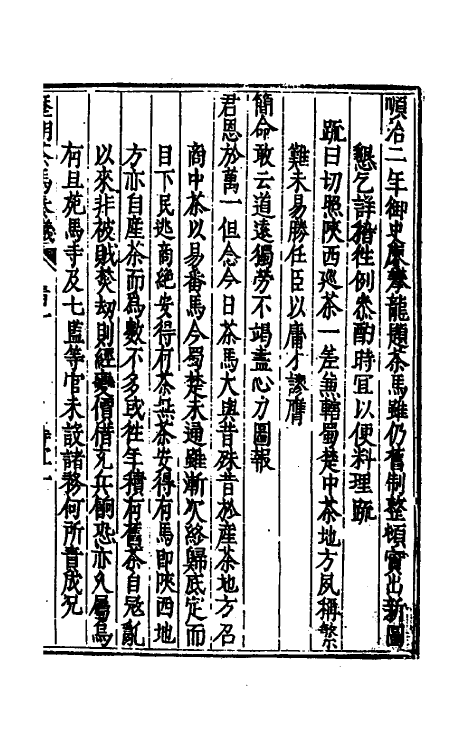 順治二年御史廖攀龍題茶馬雖仍舊制整頓實出新圖
懇乞詳稽往例叅酌時宜以便料理疏
疏曰切照陝西廵茶一差兼轄蜀楚中茶地方夙稱繁
難未易勝任臣以庸才謬膺
簡命敢云道遠獨劳不竭盡心力圖報
君恩於萬一但念今日茶馬大與昔殊昔於產茶地方召
商中茶以易番馬今蜀楚未通雖漸次絡歸底定而
目下民逃商絶安得有茶無茶安得有馬即陝西地
方亦自產茶而為數不多或徃年積有舊茶自冦亂
以來非被賊焚刼則經變價借充兵餉恐亦久屬烏
有且苑馬寺及七監等官未設諸務何所責成况
歷朝茶馬奏議